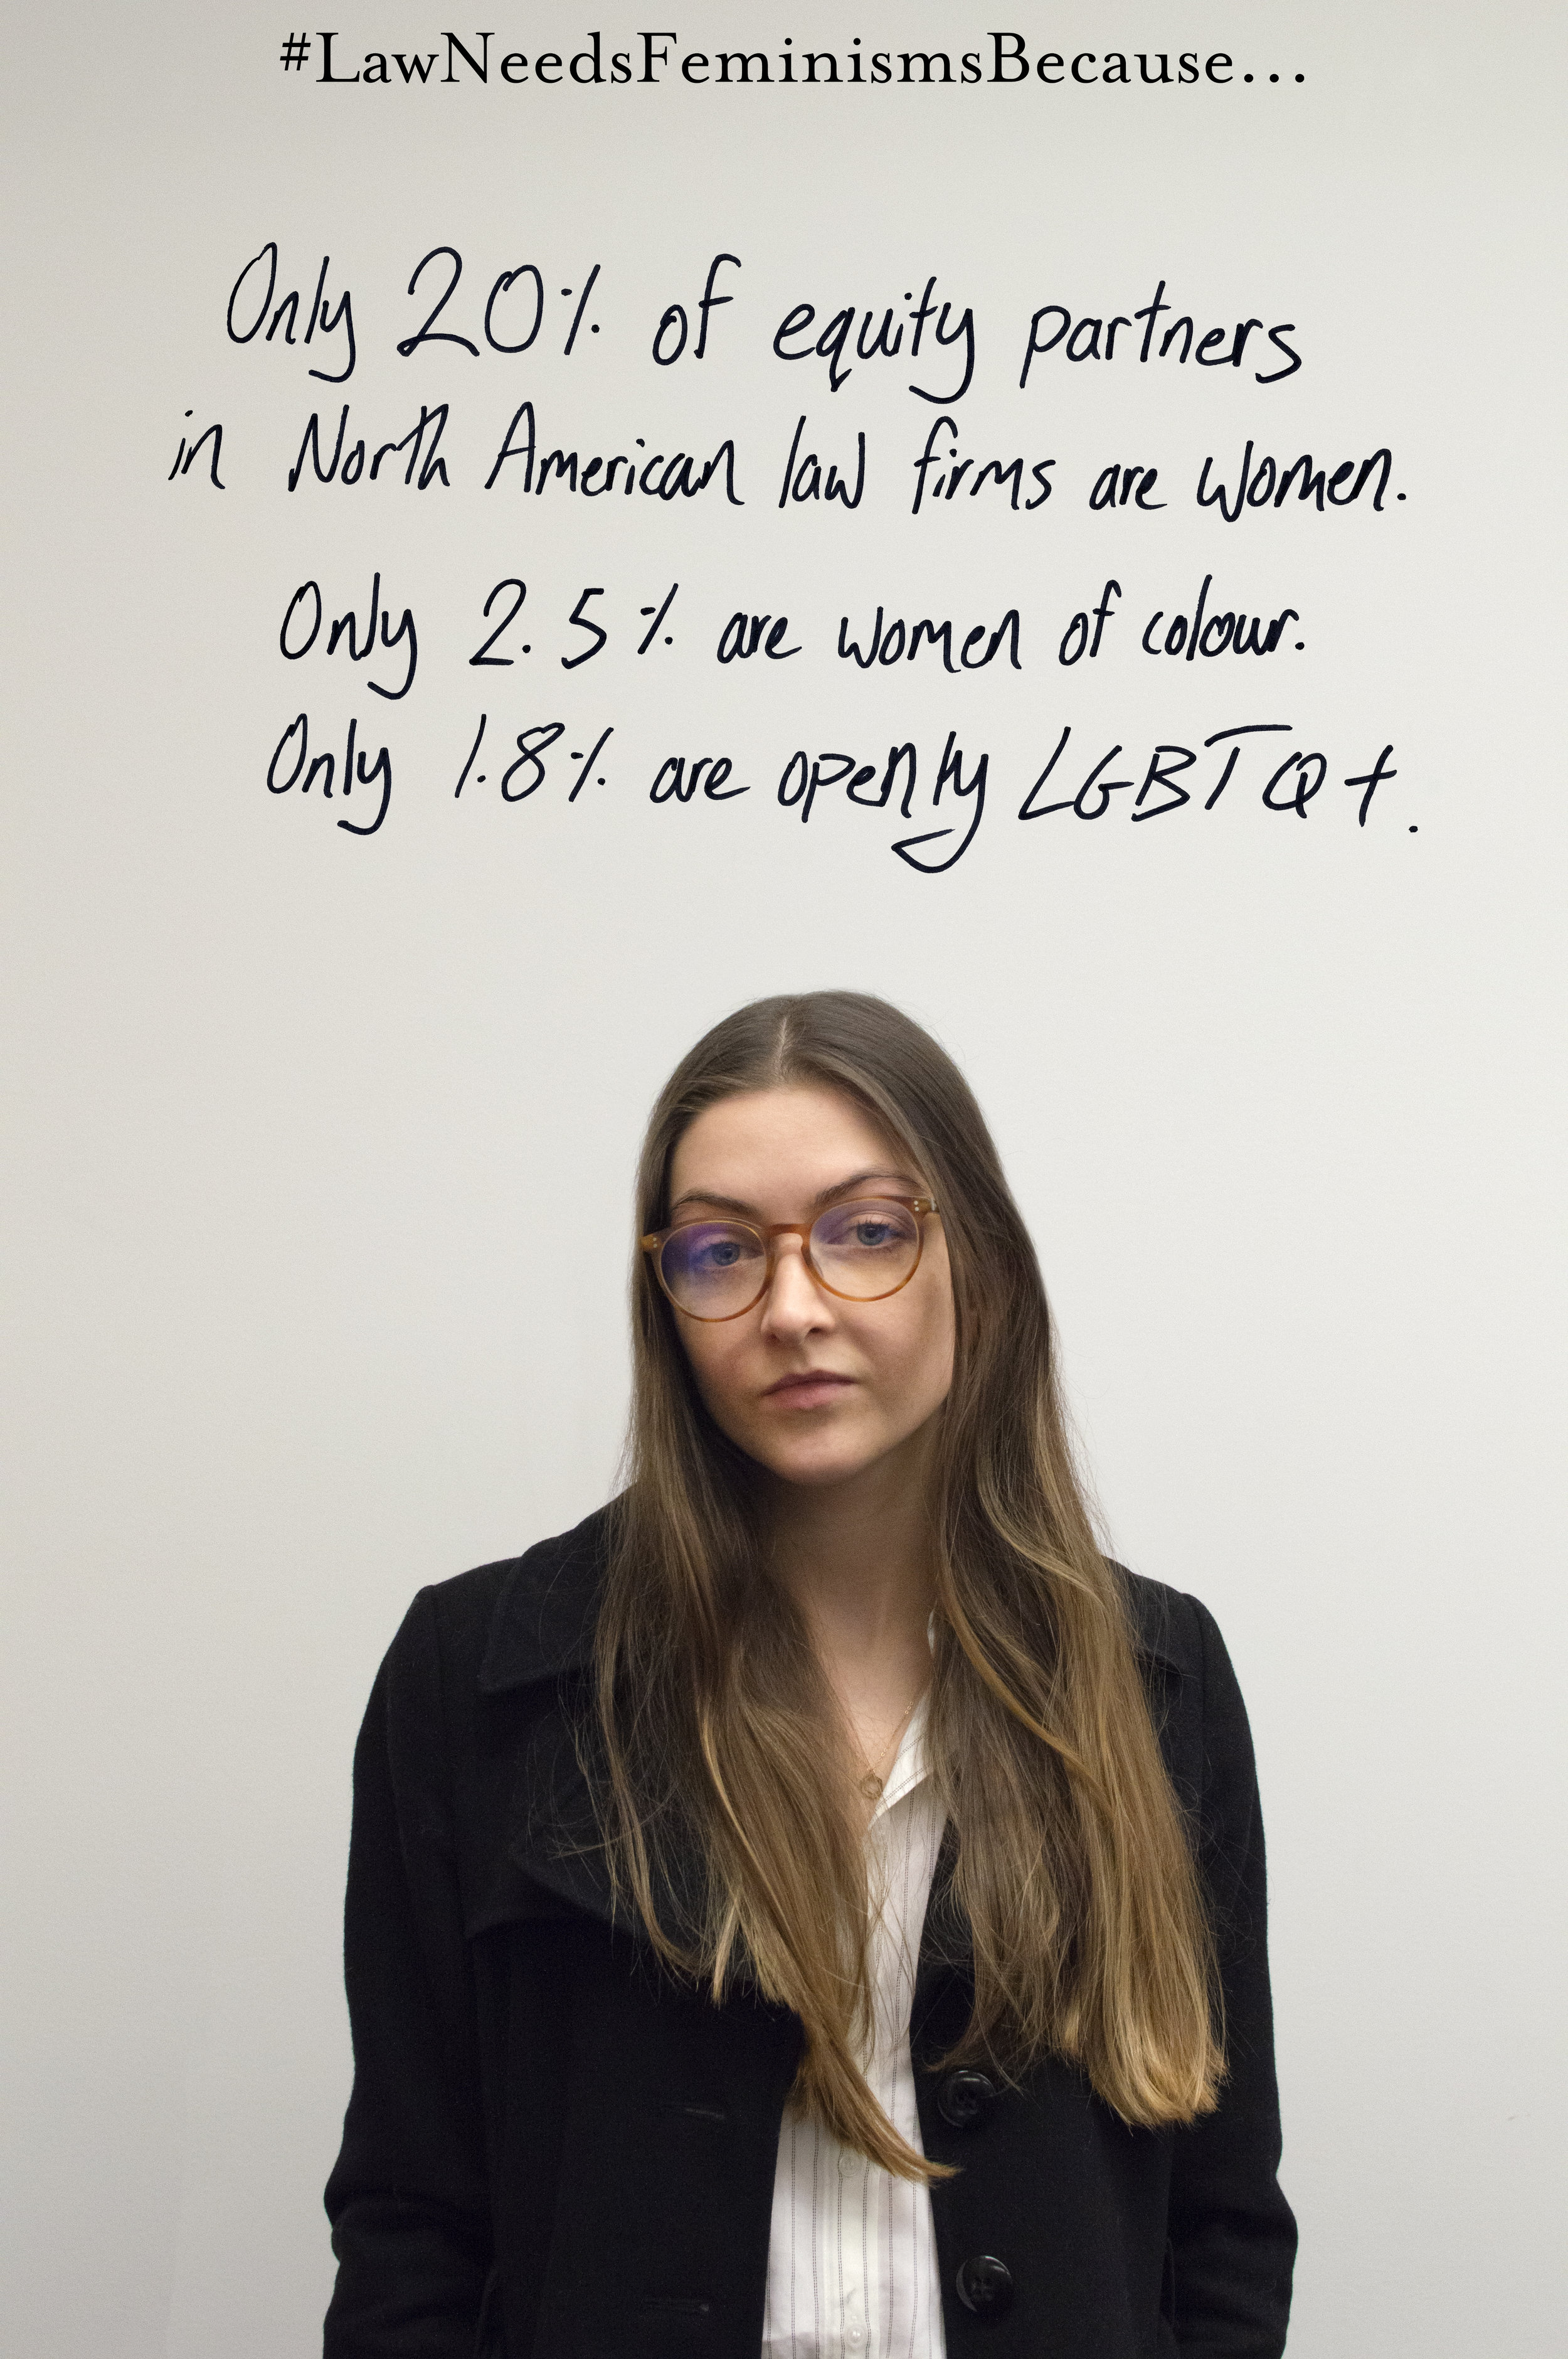 #LawNeedsFeminismsBecause...
Only 20% of equity partners
in North American law firms are women.
Only 2.5% are women of colour.
Only 1.8% are openly LGBTQ+.